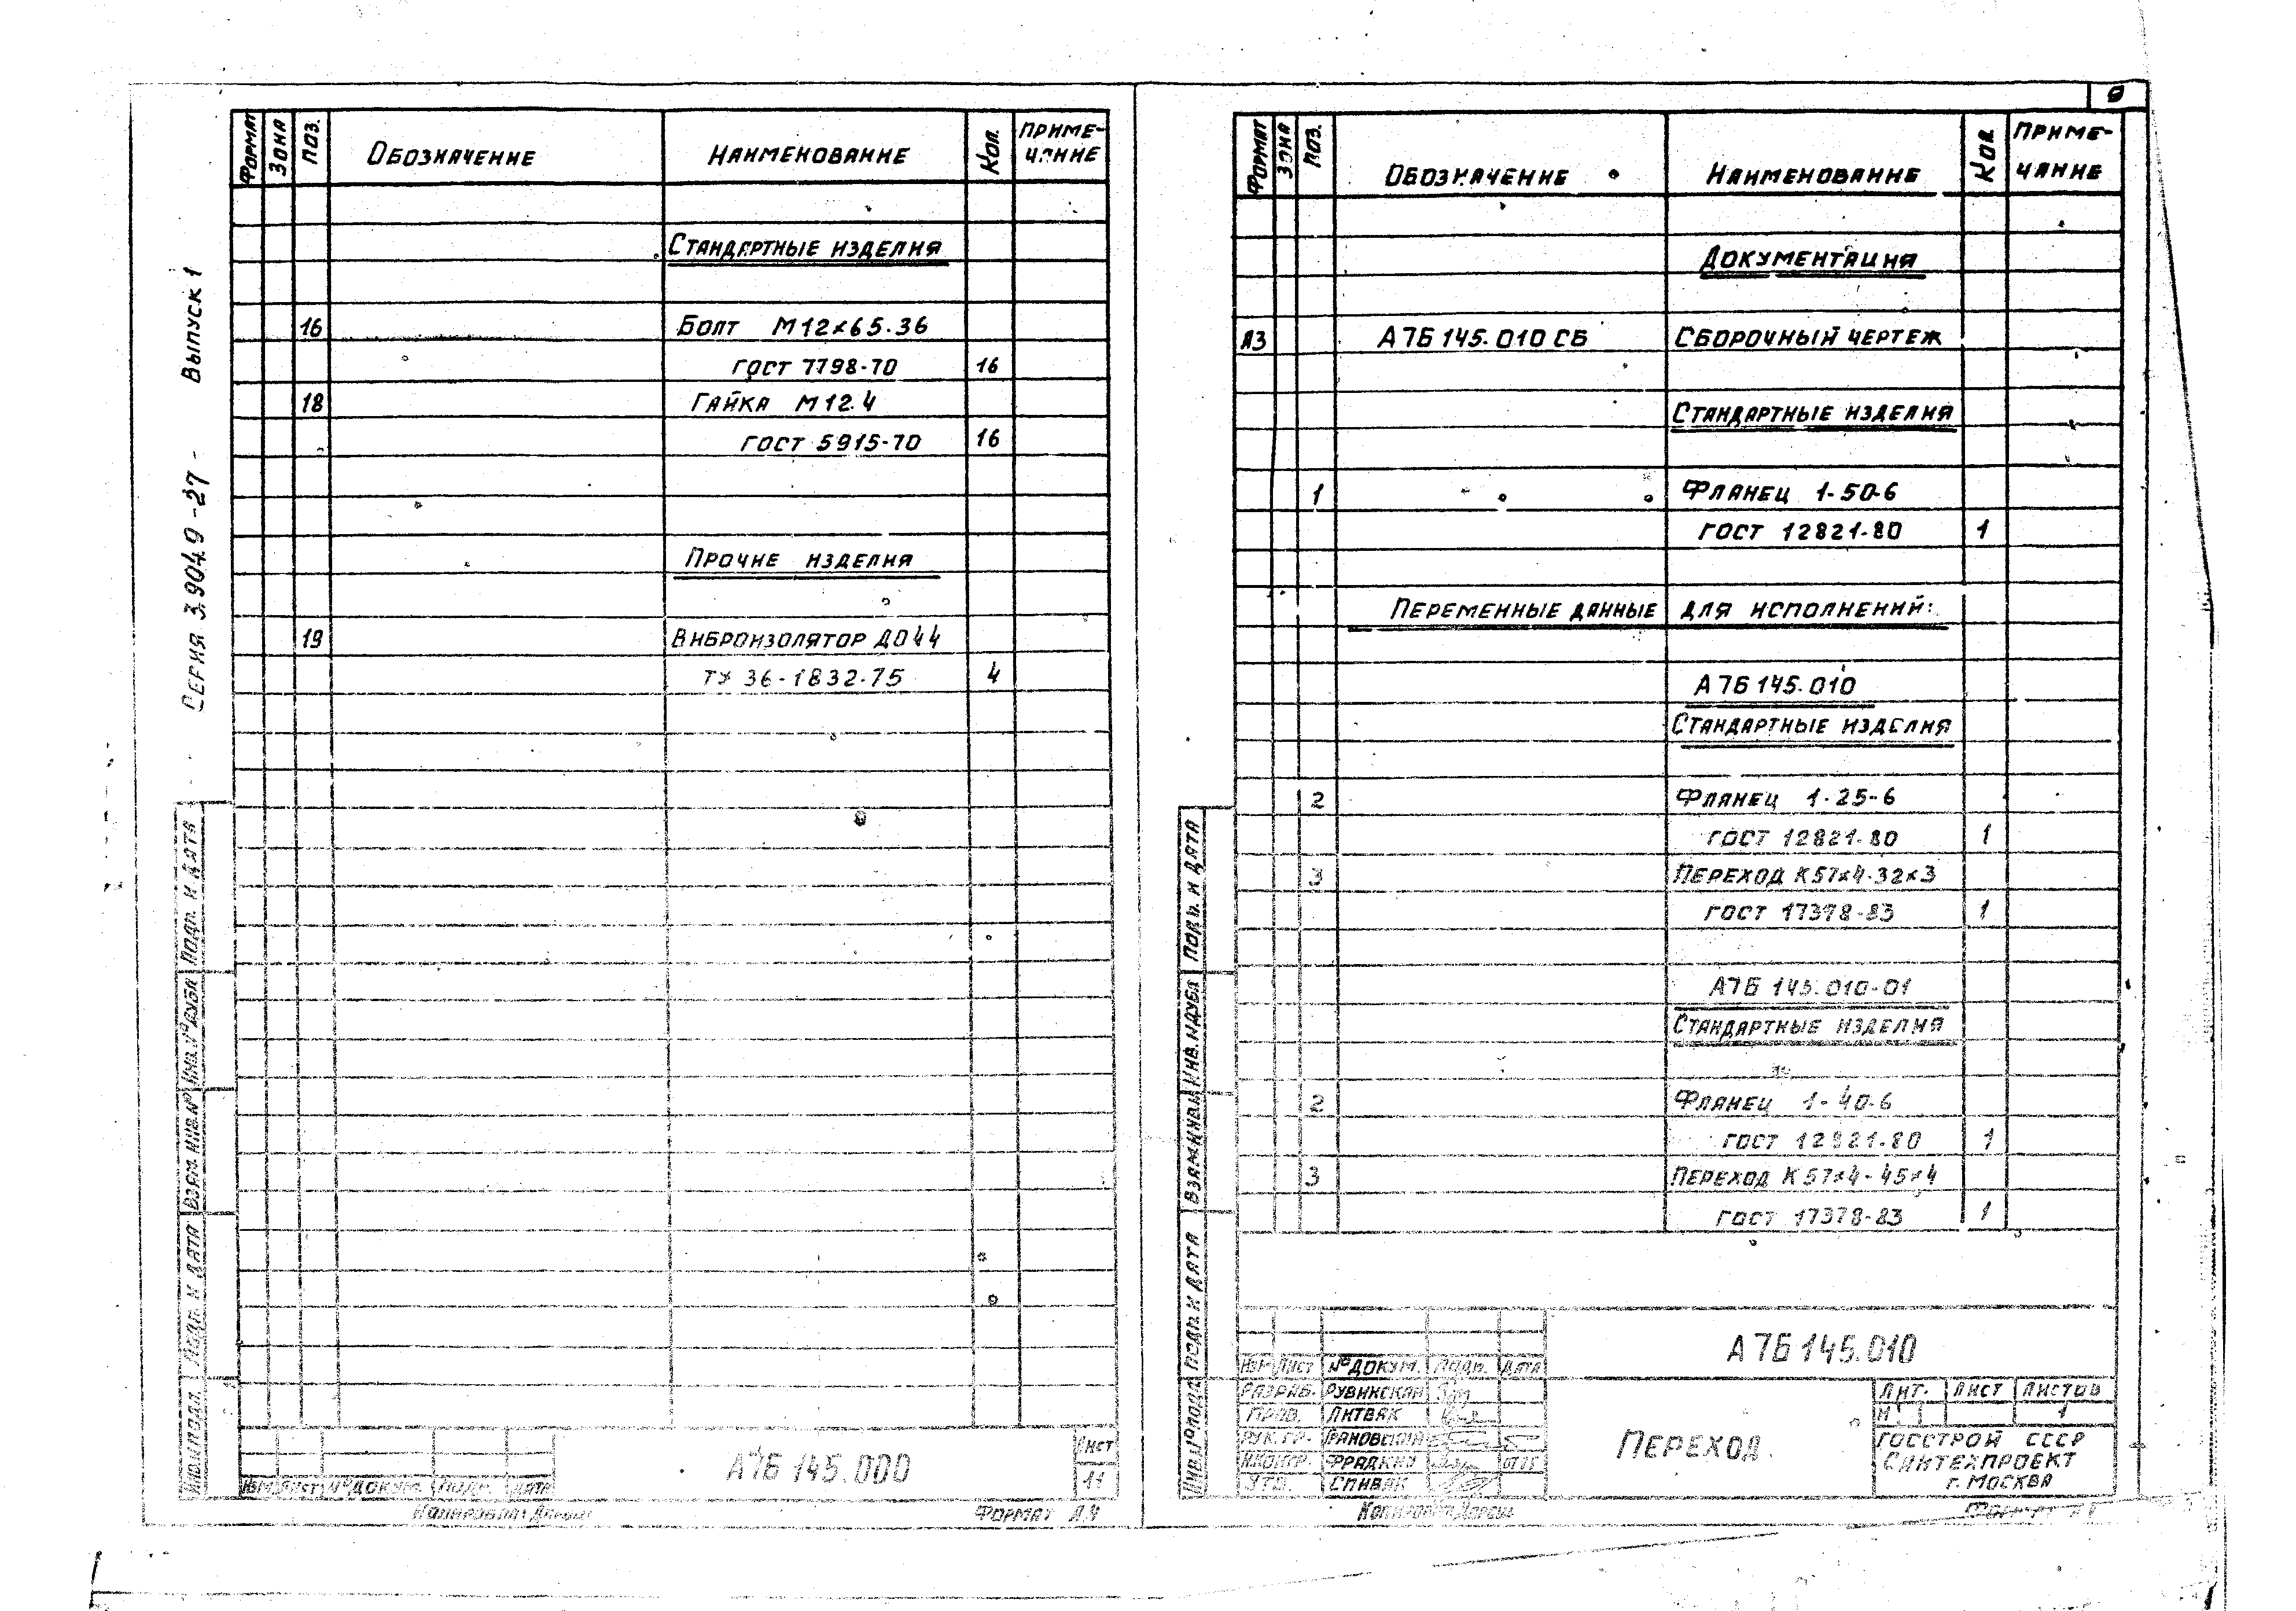 Серия 3.904.9-27 - Выпуск 1
Формат Зона Поз. Обозначение Наименование Кол. Приме-
чание
Стандартные изделия
16 Болт М12×65.36
ГОСТ 7798-70 16
18 Гайка М12.4
ГОСТ 5915-70 16
Прочие изделия
19 Виброизолятор ДО44
ТУ 36-1832-75 4
Подп. и дата
Инв.№дубл
Взам.инв.№
Подп. и дата
Инв.№подл.
Изм. Лист №докум. Подп. Дата
А7Б 145.000
Лист
11
Копировал
Формат А4
9
Формат Зона Поз. Обозначение Наименование Кол Приме-
чание
Документация
А3 А7Б 145.010 СБ Сборочный чертеж
Стандартные изделия
1 Фланец 1-50-6
ГОСТ 12821-80 1
Переменные данные для исполнений:
А7Б 145.010
Стандартные изделия
2 Фланец 1-25-6
ГОСТ 12821-80 1
3 Переход К57×4-32×3
ГОСТ 17378-83 1
А7Б 145.010-01
Стандартные изделия
2 Фланец 1-40-6
ГОСТ 12821-80 1
3 Переход К57×4-45×4
ГОСТ 17378-83 1
Подп. и дата
Инв.Nдубл
Взам.инв.N
Подп. и дата
Инв.№подл
Изм Лист №докум. Подп. Дата
Разраб. Рувинская
Пров. Литвак
Рук. гр.
Н.контр. Фрадкин
Утв. Спивак
А7Б 145.010
Переход
Лит. Лист Листов
И 1
Госстрой СССР
Сантехпроект
г. Москва
Копировал
Формат